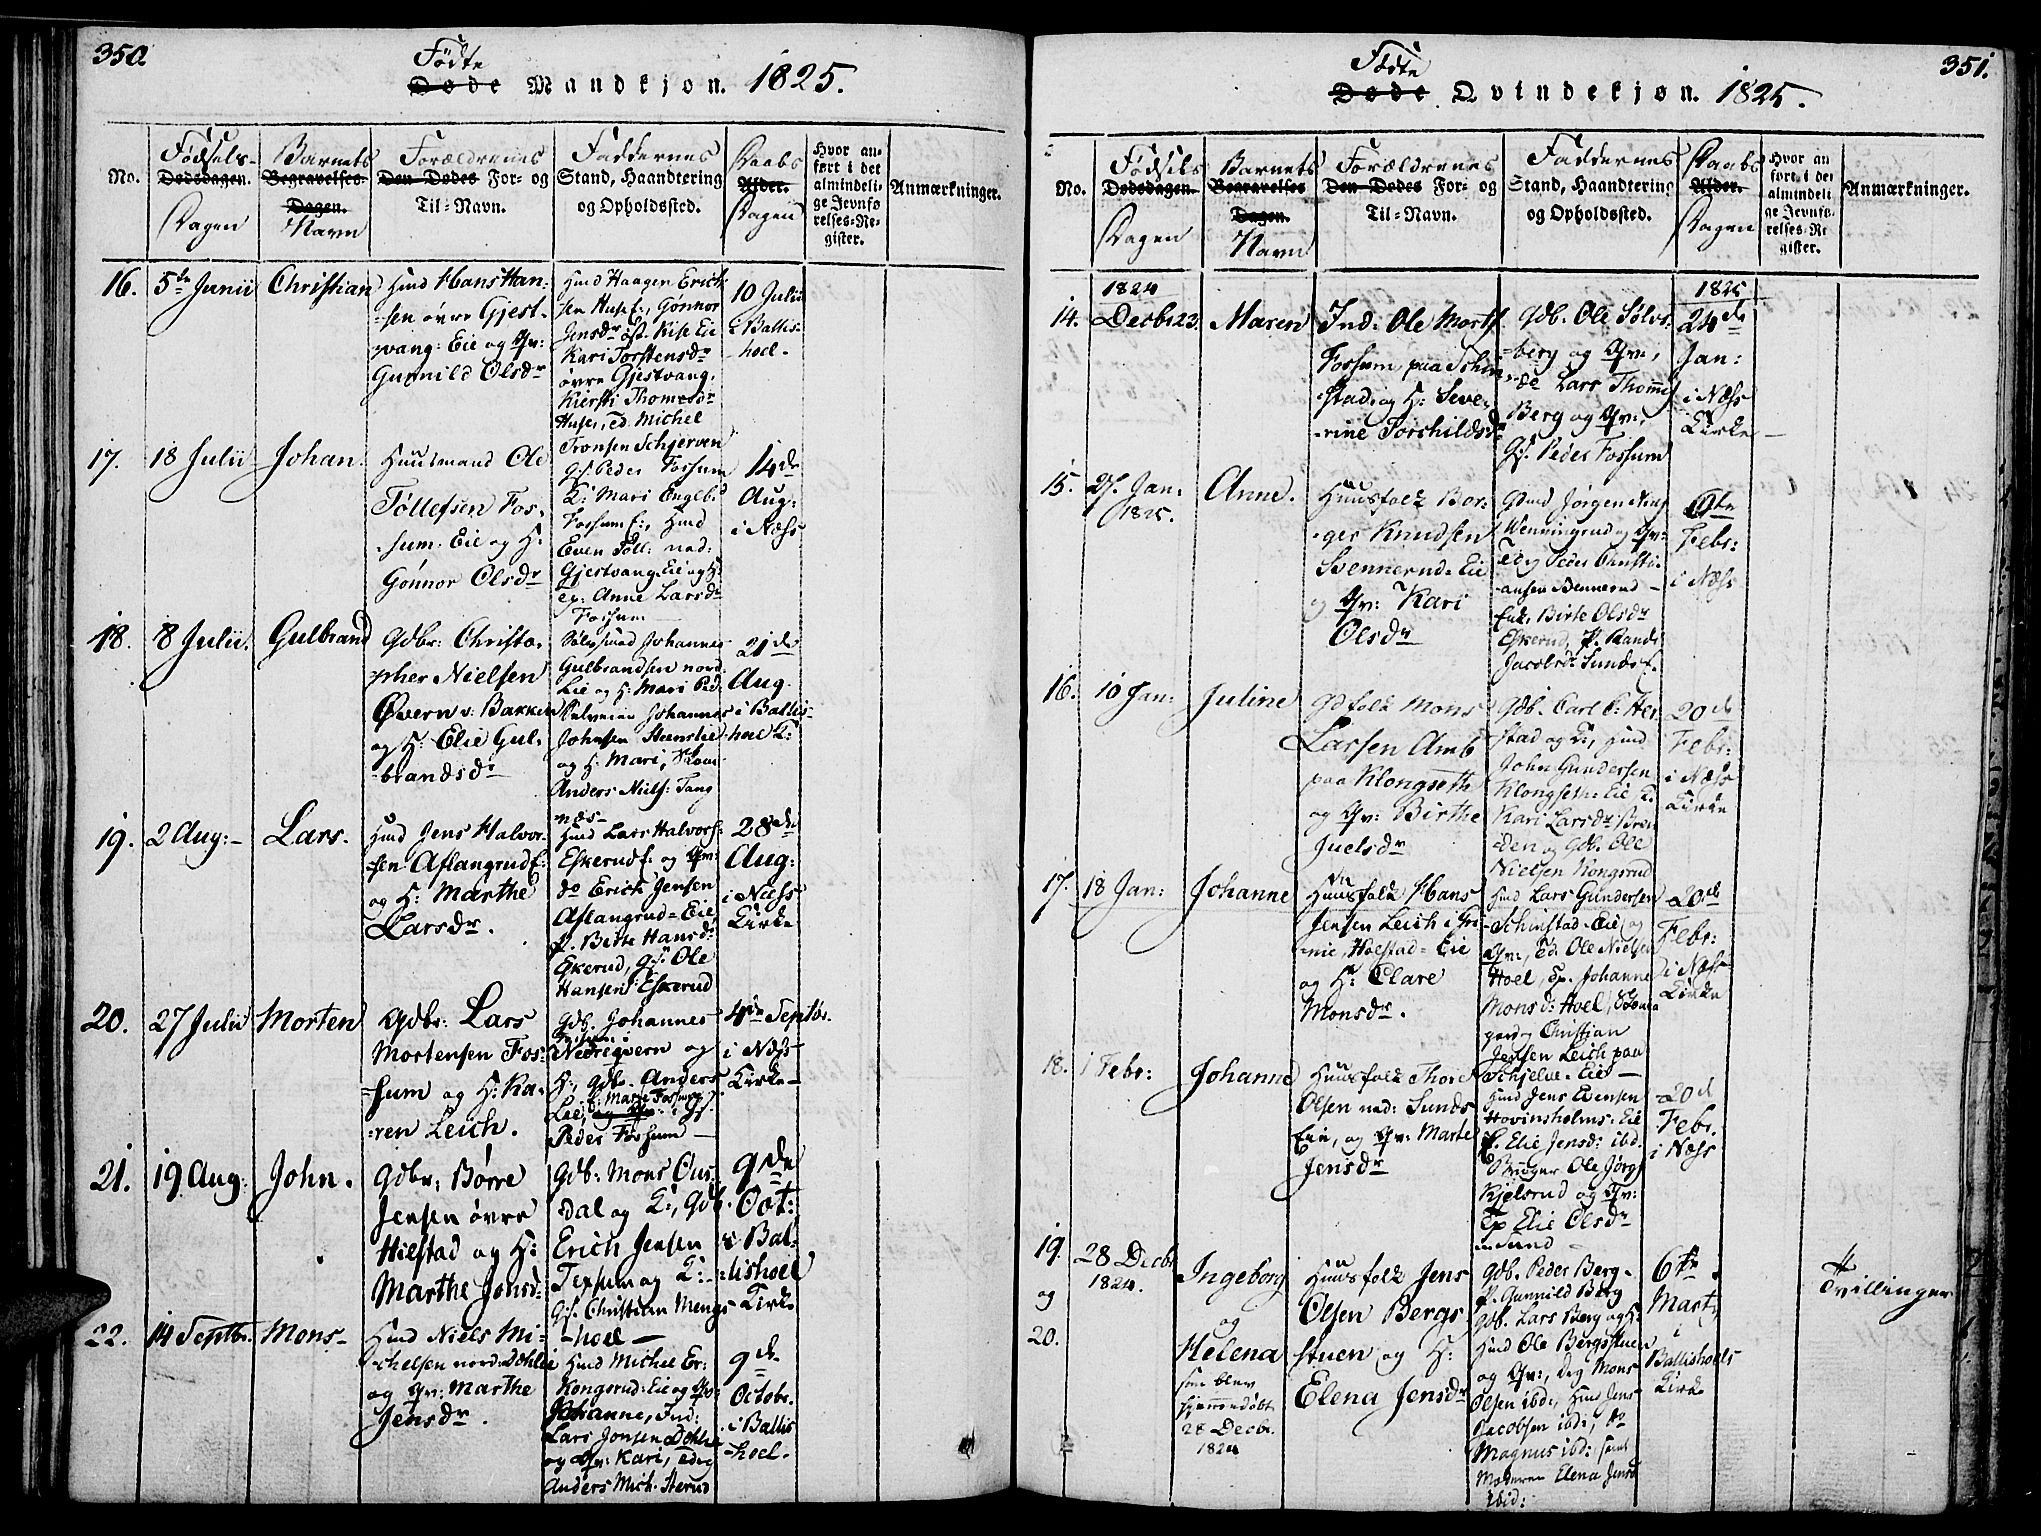 350.
Födte
Døde Mandkjøn. 1825.
No.
Fødsels-
Dødsdagen.
Dagen
Barnets
Begravelses-
Dagen.
Navn
Forældrenes
Den Dødes For- og
Til-Navn.
Faddernes
Stand, Haandtering
og Opholdssted.
Daabs
Alder.
Dagen
Hvor an-
ført i det
almindeli-
ge Jevnfø-
relses-Re-
gister.
Anmærkninger.
16. 5te Junii Christian
Hmd Hans Han-
sen øvre Gjest-
vang: Eie og Qv:
Gunnild Olsdr
Hmd Haagen Erich-
sen Huse E:, Gønnor
Jensdr Kise Eie
Kari Torstensdr
øvre Gjestvang,
Kiersti Thomesdr
Huse, Ed. Michel
Tronsen Schjerven
10 Julii
i Ballis-
hoel.
17. 18 Julii Johan.
Huusmand Ole
Tøllefsen Fos-
sum Eie og H:
Gønnor Olsdr
Gf. Peder Fossum
K: Mari Engeb:
Fossum E:, Hmd
Even Toll: ned:
Gjestvang Eie og H:
Ep: Anne Larsdr
Fossum
14de
Aug:
i Næss
18. 8 Julii. Gulbrand
Gdbr: Christo-
pher Nielsen
Øvern v: Bakken
og H: Elie Gul-
brandsdr
Johannes
Gulbrandsen nord
Lie og H: Mari Ped.
Johannes
Johnsen Steensli
og H: Mari,
Anders Niels: Tang
næs
21de
Aug.
i Ballis-
hoel K:
19. 2 Aug: Lars.
Hmd Jens Halvor-
sen Aslangrud E:
og H: Marthe
Larsdr.
Hmd Lars Halvors:
Eskerud E: og Qv:
do Erich Jensen
Aslangrud Eie,
P. Birte Hansdr
Eskerud, Gf. Ole
Hansen Eskerud
28de
Aug:
i Næss
Kirke
20. 27 Julii Morten
Gdbr: Lars
Mortensen Fos-
sum og H: Ka-
ren Leich.
Gdb. Johannes
Nedreqvern og
H:, Gdbr. Anders
Lie, og Qv: Gf.
K: Marte Fossum
Peder Fossum
4de Septbr.
i Næss
Kirke
21. 19 Aug: John.
Gdbr: Børre
Jensen øvre
Hielstad og H:
Marthe Jonsd:
Gdb: Mons Ous-
dal og K:, Gdb.
Erich Jensen
Tessum og K:
Gf. Christian Mengs-
hoel
9de
Oct:
i Bal-
lishoel
Kirke
22. 14 Septbr. Mons
Hmd Niels Mi-
chelsen nord: Dæhlie
og Qv: Marthe
Jensdr.
Hmd Michel Er:
Kongsrud: Eie og Qv:
Johanne, Ind:
Lars Jonsen Dehlie
og Qv: Kari, Edog
Anders Mich. Sterud
9de
Octobr.
i Ballis
hoel.
351.
Fødte
Døde Qvindekjøn. 1825.
No.
Fødsels
Dødsdagen.
Dagen
Barnets
Begravelses
Dagen.
Navn
Forældrenes
Den Dødes For- og
Til-Navn.
Faddernes
Stand, Haandtering
og Opholdssted.
Daabs
Alder.
Dagen
Hvor an
ført i det
almindeli
ge Jevnfø-
relses-Re
gister.
Anmærkninger.
1824
14. Decbr 23. Maren
Ind: Ole Morts
Fossum paa Schin-
stad og H: Seve-
rine Torchildsdr
Gdb. Ole Sølvs-
berg og Qv:,
do Lars Thomes
Berg og Qv:,
Gf. Peder Fossum
1825
24de
Jan:
i Næss
Kirke
15. 27. Jan:
1825.
Anne.
Huusfolk Bor-
ger Knudsen
Bennerud Eie
og Qv: Kari
Olsdr
Gmd Jørgen
Wenningrud og Qv:
Peder Christi-
ansen Bennerud
Enk. Birte Olsdr
Eskerud, P. Rande
Jacobsdr Sunds E.
9de
Febr:
i Næss
16. 10 Jan: Juline
Gdfolk Mons
Larsen Amb
paa Klongseth
og Qv: Birthe
Juelsdr
Gdb. Carl C: Her-
stad og K:, Hmd
John Gundersen
Klongseth: Eie K:
Kari Larsdr Bræ-
den og Gdb. Ole
Nielsen Kongsrud
20de
Febr:
i Næss
Kirke
17. 18 Jan: Johanne
Huusfolk Hans
Jensen Leich i Gri-
nie, Hoelstad Eie
og H: Clare
Monsdr.
Hmd Lars Gundersen
Schinstad Eie, og
Qv:, Ed. Ole Nielsen
Hoel, Ep. Johanne
Monsd: Hoel,
Christian
Jensen Leich paa
Schjelve Eie
20de
Febr:
i Næss
Kirke
18. 1 Febr: Johanne
Huusfolk Thore
Olsen ned: Sunds
Eie, og Qv: Marte
Jensdr
Hmd Jens Evensen
Hovinsholms: Eie
P. Elie Jensd: ibd.
Bruger Ole Jørgs
Kjelsrud og Qv:
Ep Elie Olsdr
Sund
20de
Febr.
i Næss
19.
og
20.
28 Decbr
1824.
Ingeborg
og
Helena
som blev
hjemmedøbt
28 Decbr.
1824
Huusfolk Jens
Olsen Bergs
stuen og H:
Elena Jensdr
Gdb. Peder Berg
P. Gunnild Berg
Gdb. Lars Berg og H:
Hmd Ole Bergsstuen
og Qv:, Drg Mons
Olsen ibd:, Hmd Jens
Jacobsen ibd:, do
Magnus ibd: samt
Moderen Elena Jensd
ibid:
6te
Marts
i
Ballishoels
Kirke
Tvillinger